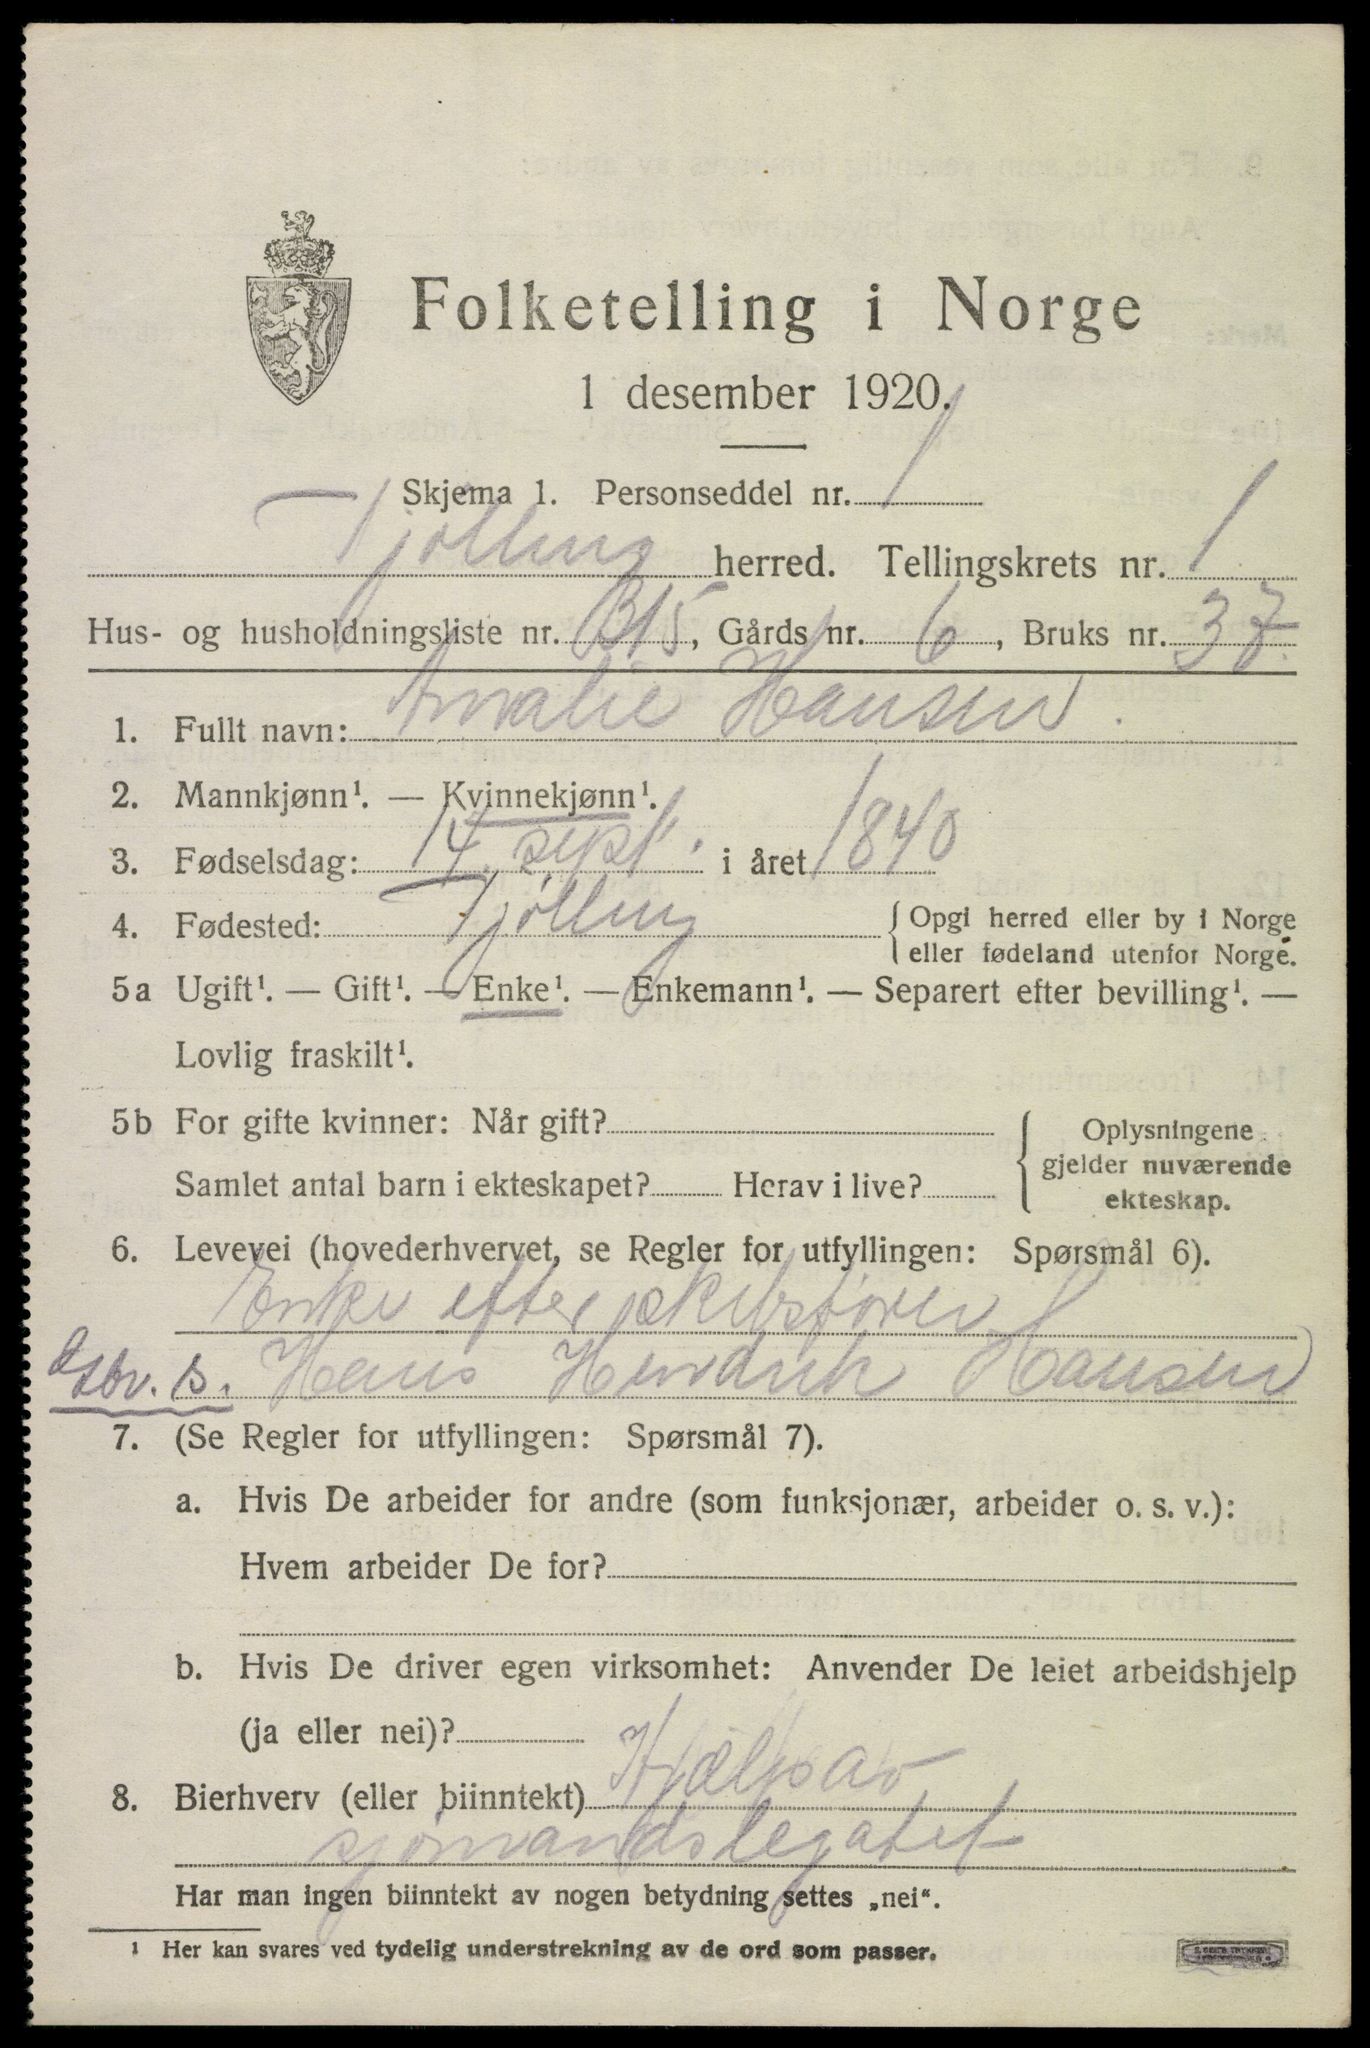 Folketelling i Norge
1 desember 1920.
Skjema 1. Personseddel nr. 1
Tjølling herred. Tellingskrets nr. 1
Hus- og husholdningsliste nr. B15, Gårds nr. 6, Bruks nr. 37.
1. Fullt navn: Amalie Hansen.
2. Mannkjønn¹. — Kvinnekjønn¹.
3. Fødselsdag: 14. sept. i året 1840
4. Fødested: Tjølling { Opgi herred eller by i Norge
eller fødeland utenfor Norge.
5a Ugift¹. — Gift¹. — Enke¹. — Enkemann¹. — Separert efter bevilling¹. —
Lovlig fraskilt¹.
5b For gifte kvinner: Når gift?
Samlet antal barn i ekteskapet? Herav i live?
{ Oplysningene
gjelder nuværende
ekteskap.
6. Levevei (hovederhvervet, se Regler for utfyllingen: Spørsmål 6).
Enke efter skibsfører
Hans Hendrik Hansen
7. (Se Regler for utfyllingen: Spørsmål 7).
a. Hvis De arbeider for andre (som funksjonær, arbeider o. s. v.):
Hvem arbeider De for?
b. Hvis De driver egen virksomhet: Anvender De leiet arbeidshjelp
(ja eller nei)?
8. Bierhverv (eller biinntekt) Hjælp av
sjømandslegatet
Har man ingen biinntekt av nogen betydning settes „nei“.
¹ Her kan svares ved tydelig understrekning av de ord som passer.